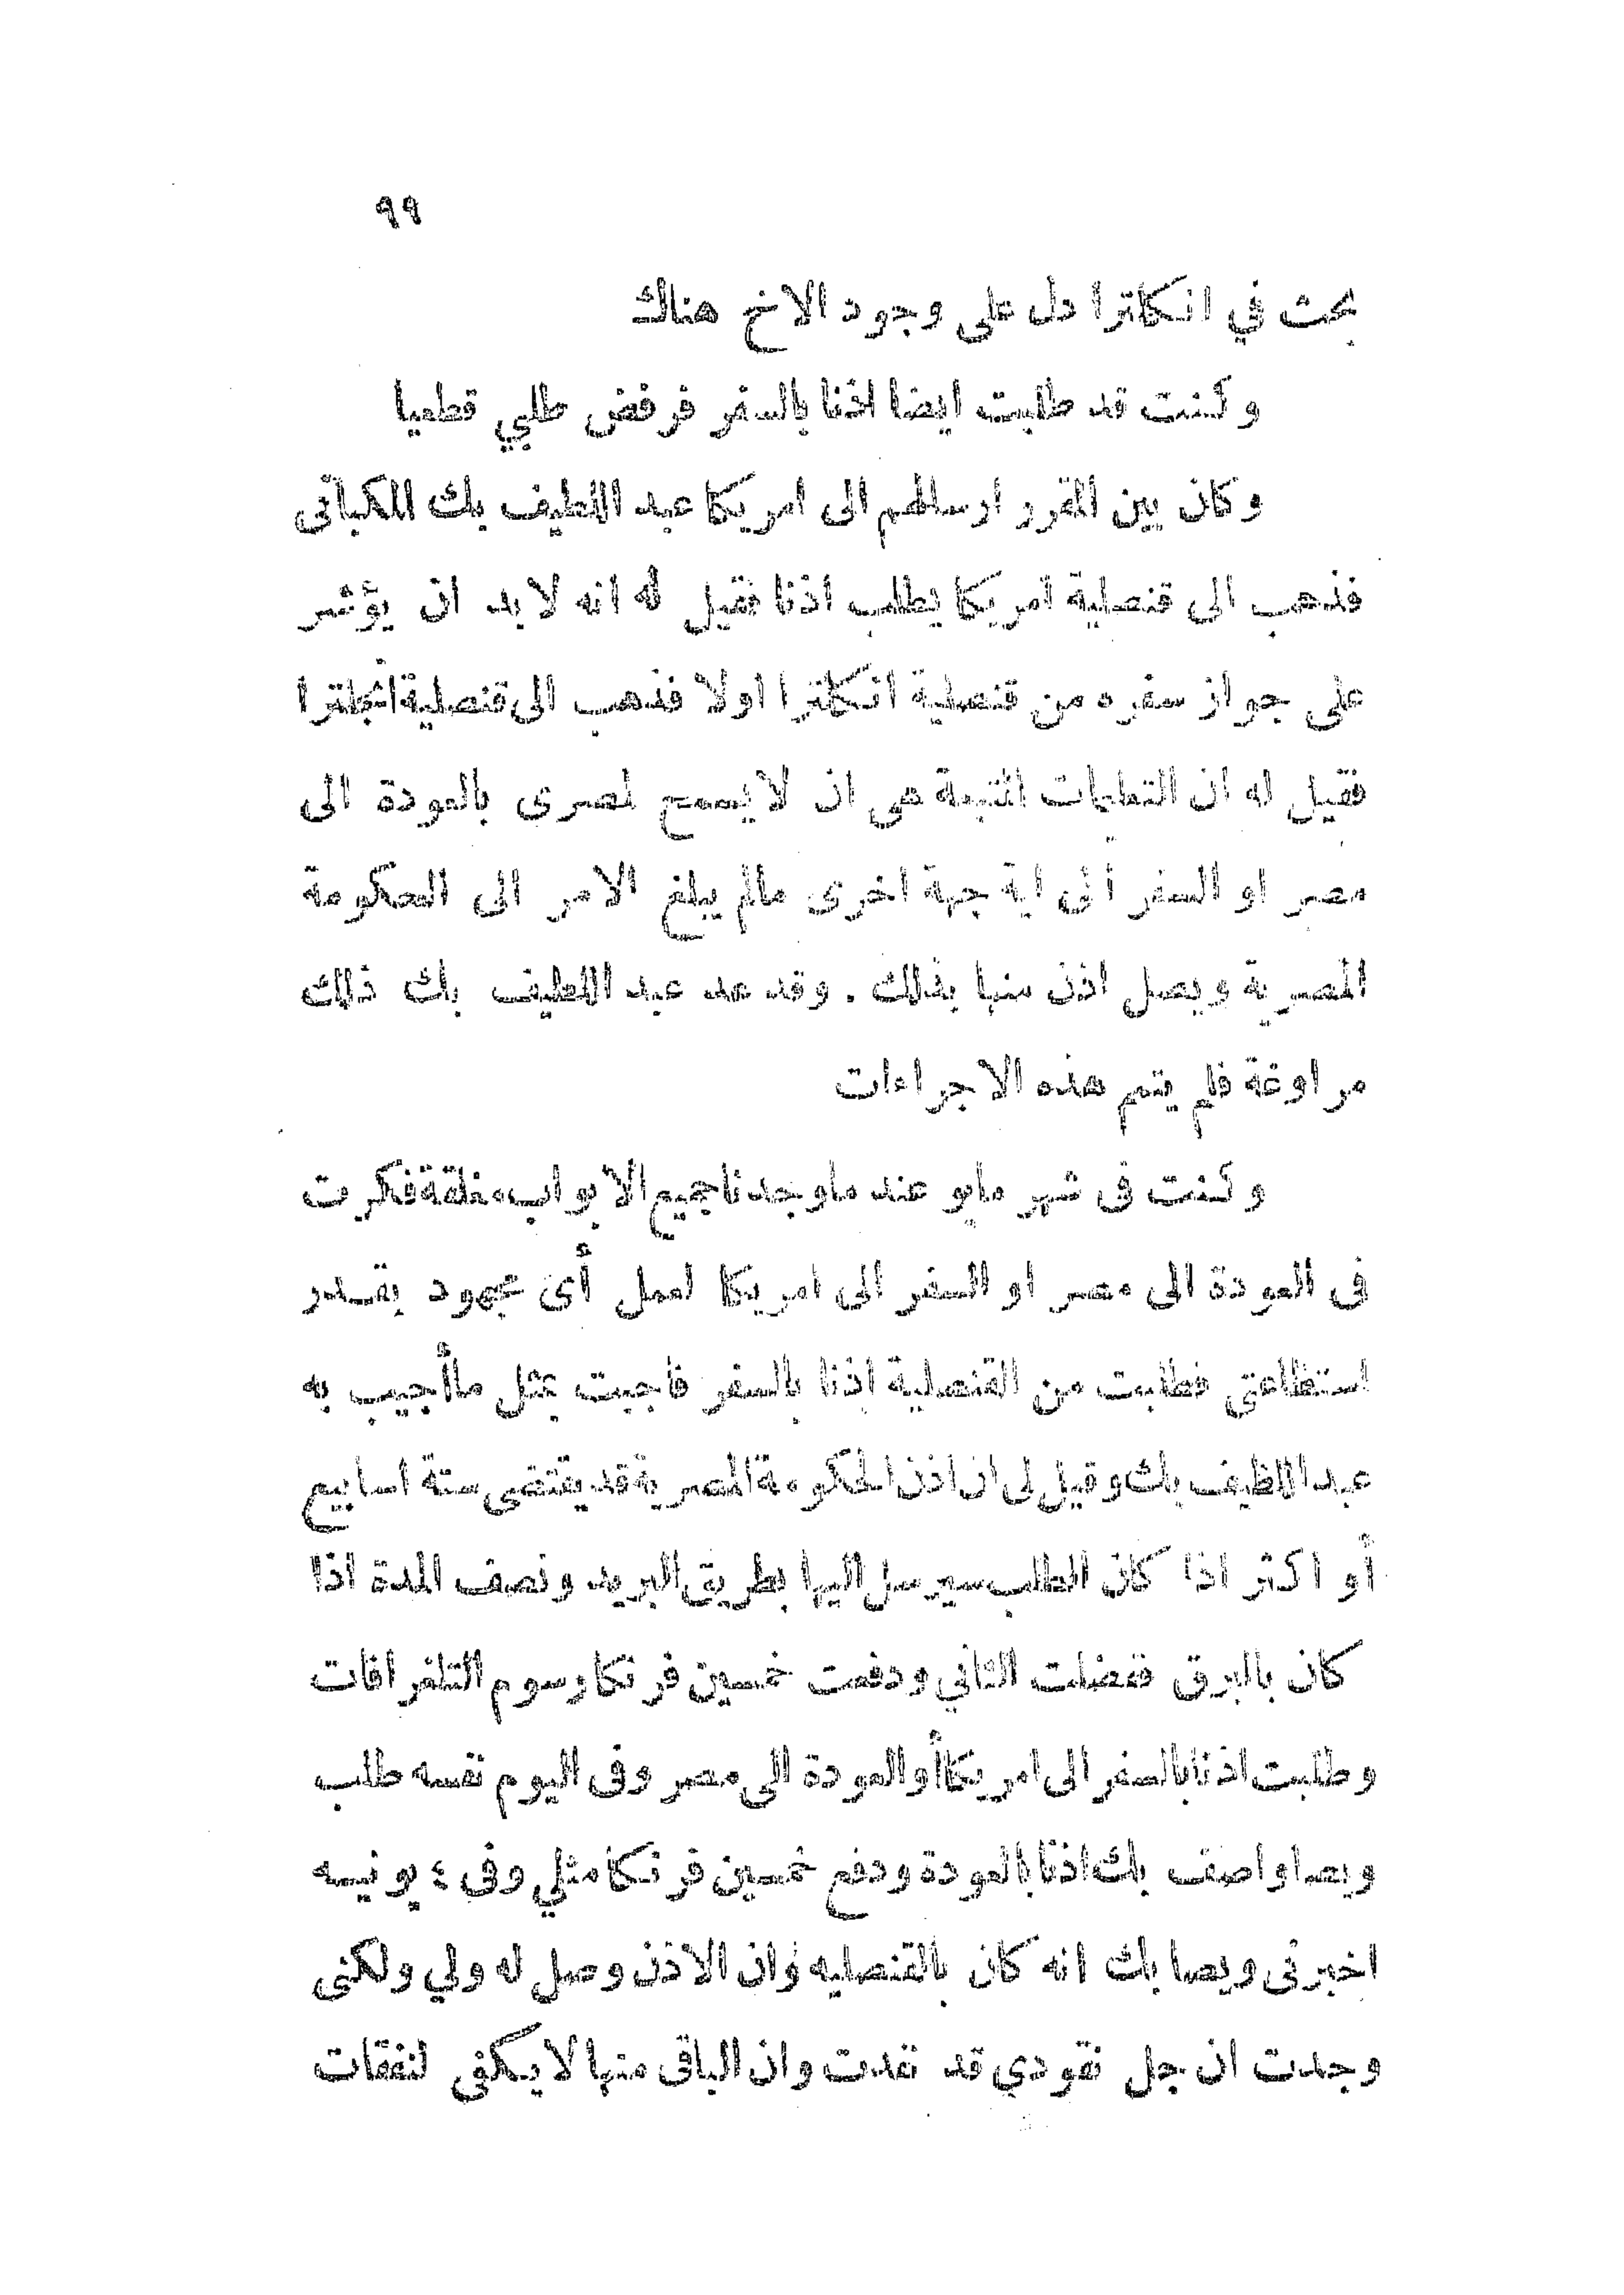 ٩٩
بحث في انكلترا دل على وجود الاخ هناك
وكنت قد طلبت ايضا اذنا بالسفر فرفض طلبي قطعيا
وكان بين المقرر ارسالهم الى امريكا عبد اللطيف بك المكباتى
فذهب الى قنصلية امريكا يطلب اذنا فقيل له انه لا بد ان يؤشر
على جواز سفره من قنصلية انكلترا اولا فذهب الى قنصلية انجلترا
فقيل له ان التعليمات المتبعة هى ان لا يسمح لمصرى بالعودة الى
مصر او السفر الى اية جهة اخرى مالم يبلغ الامر الى الحكومة
المصرية ويصل اذن منها بذلك . وقد عد عبد اللطيف بك ذلك
مراوغة فلم يتمم هذه الاجراءات
وكنت فى شهر مايو عند ماوجدنا جميع الابواب مغلقة فكرت
فى العودة الى مصر او السفر الى امريكا لعمل أى مجهود بقدر
استطاعتى فطلبت من القنصلية اذنا بالسفر فاجبت بمثل ماأجيب به
عبد اللطيف بك وقيل لى ان اذن الحكومة المصرية قد يقتضى ستة اسابيع
أو اكثر اذا كان الطلب سيرسل اليها بطريق البريد ونصف المدة اذا
كان بالبرق ففضلت الثاني ودفعت خمسين فرنكا رسوم التلغرافات
وطلبت اذنا بالسفر الى امريكا أو العودة الى مصر وفى اليوم نفسه طلب
ويصا واصف بك اذنا بالعودة ودفع خمسين فرنكا مثلي وفى ٤ يونيه
اخبرنى ويصا بك انه كان بالقنصليه وان الاذن وصل له ولي ولكنى
وجدت ان جل نقودي قد نفدت وان الباقى منها لا يكفى لنفقات